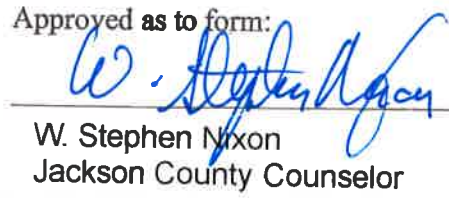 Approved as to form:
W. Stephen Nixon
W. Stephen Nixon
Jackson County Counselor